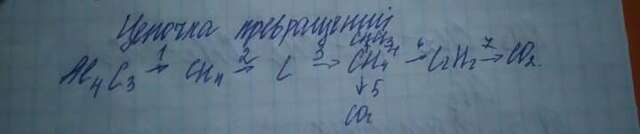 Цепочка превращений
Al4C3 →1 CH4 →2 C →3 CH4 →6 C2H2 →7 CO2
↓5
CO2